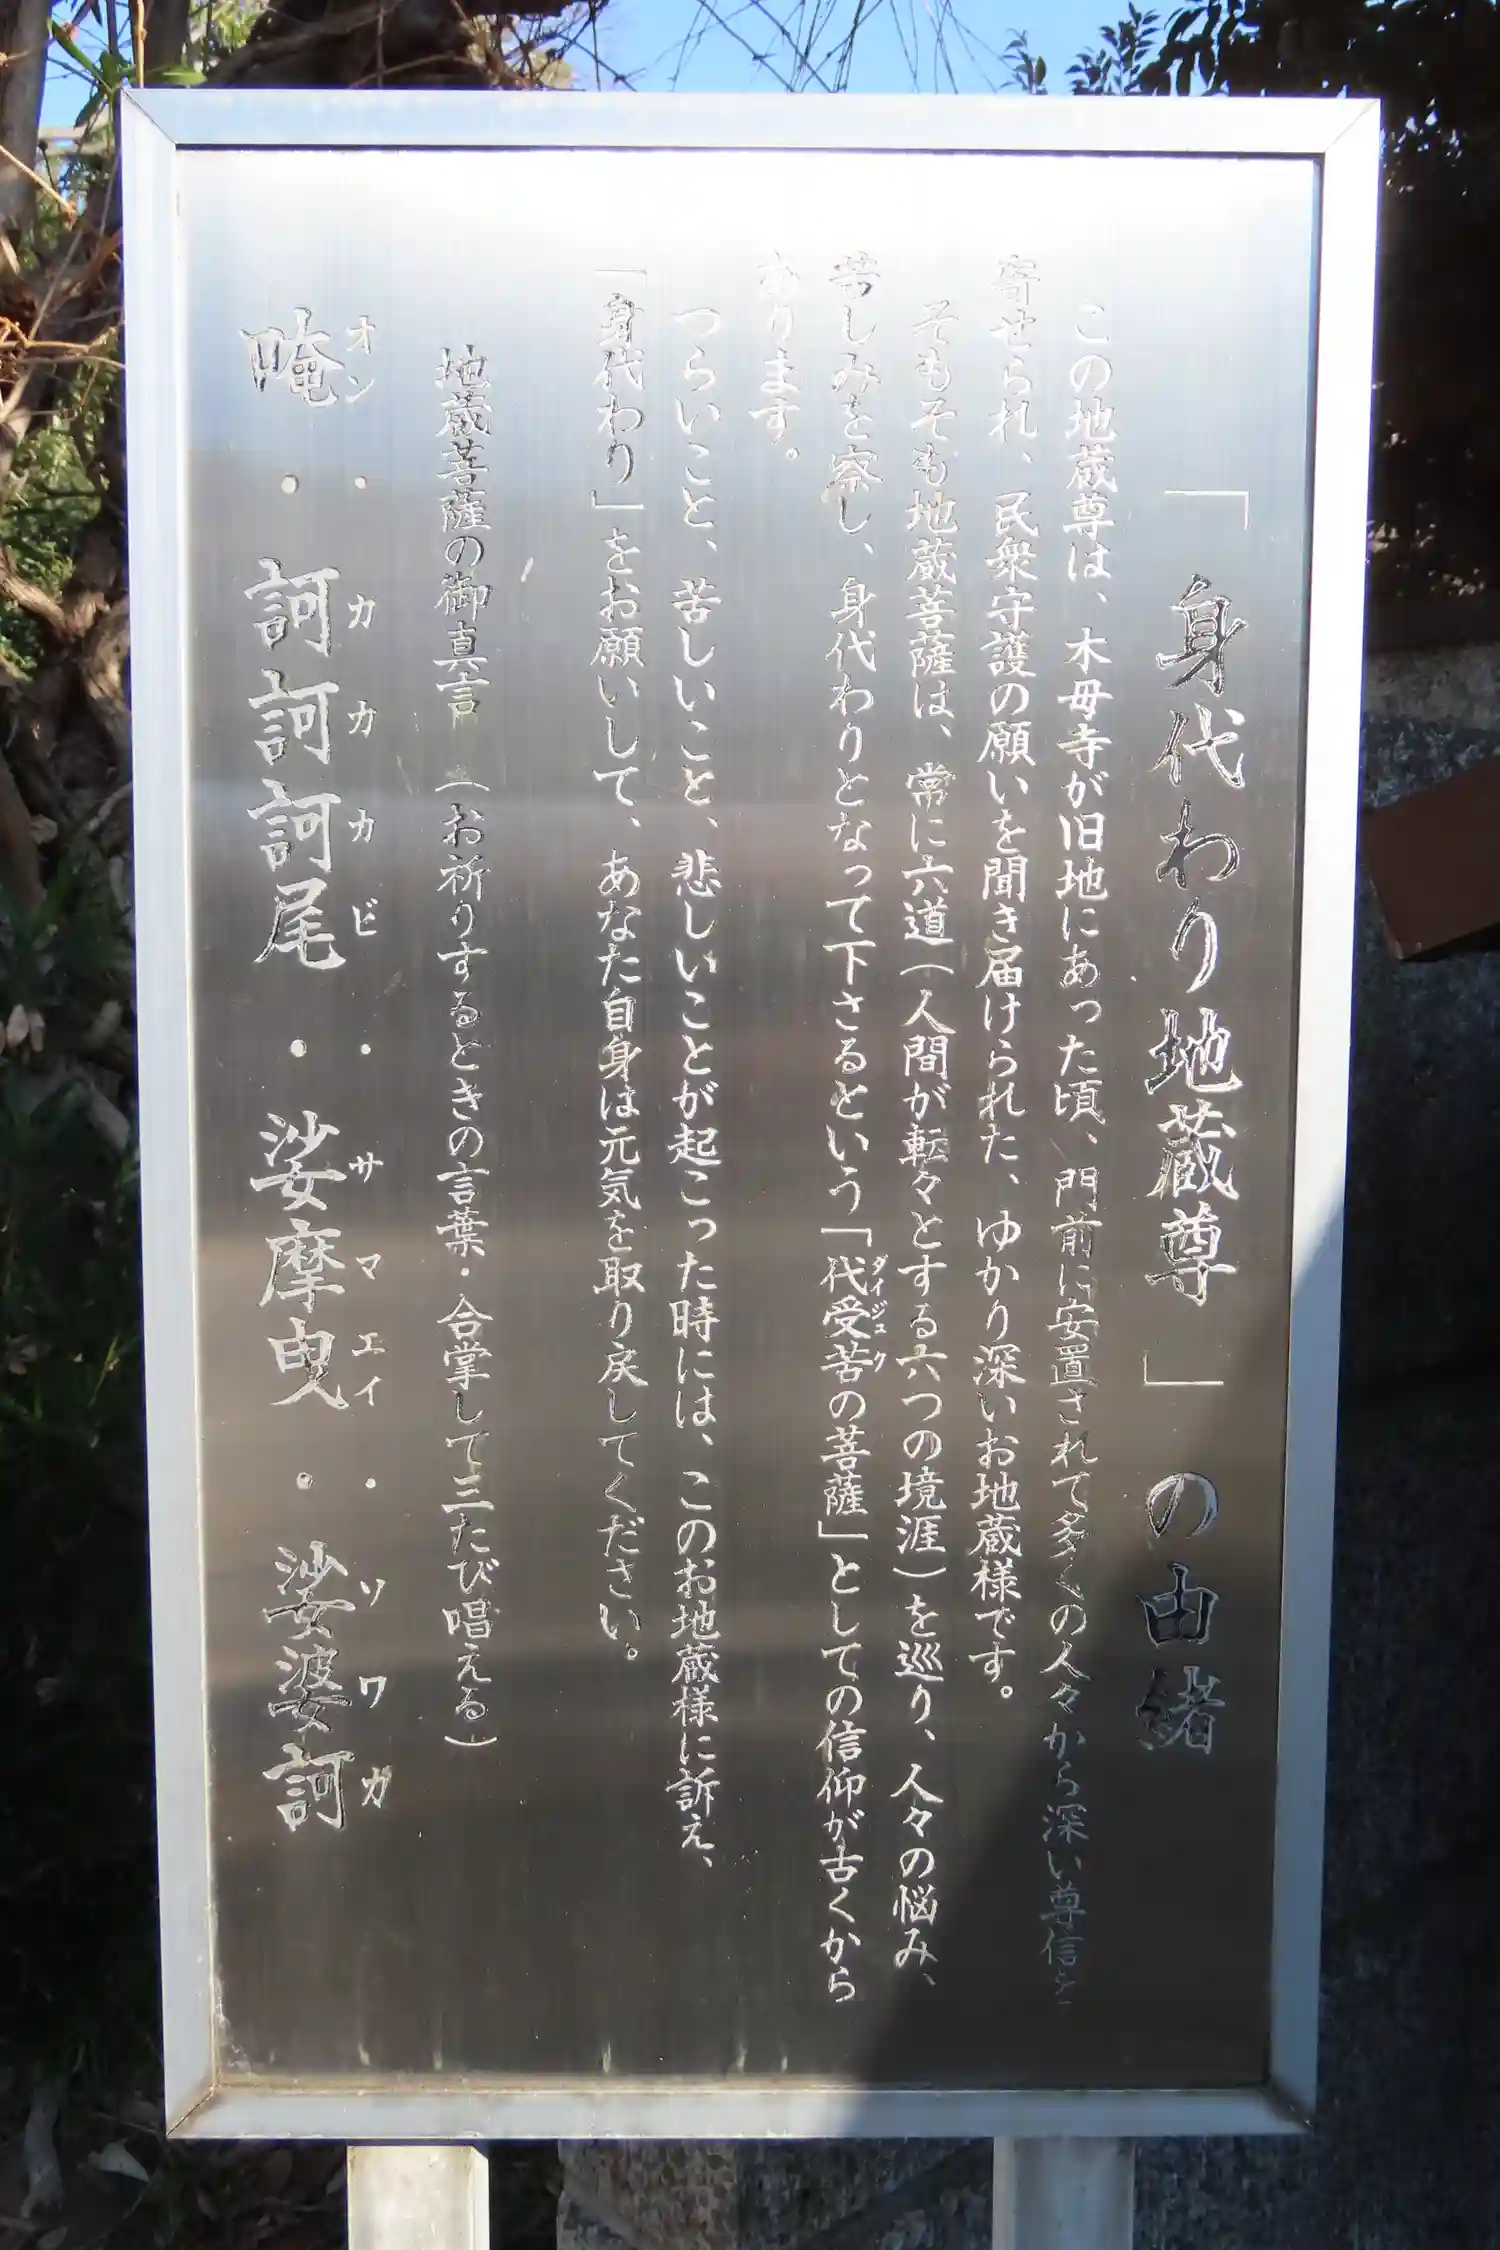 「身代わり地蔵尊」の由緒
この地蔵尊は、木母寺が旧地にあった頃、門前に安置されて多くの人々から深い尊信を
寄せられ、民衆守護の願いを聞き届けられた、ゆかり深いお地蔵様です。
そもそも地蔵菩薩は、常に六道（人間が転々とする六つの境涯）を巡り、人々の悩み、
苦しみを察し、身代わりとなって下さるという「代受苦の菩薩」としての信仰が古くから
ダイジュク
あります。
つらいこと、苦しいこと、悲しいことが起こった時には、このお地蔵様に訴え、
「身代わり」をお願いして、あなた自身は元気を取り戻してください。
地蔵菩薩の御真言（お祈りするときの言葉・合掌して三たび唱える）
オン・カカカビ・サマエイ・ソワカ
唵・訶訶訶尾・娑摩曳・娑婆訶